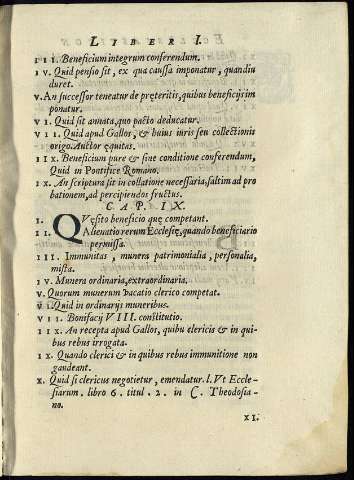 LIBERI I.
III. Beneficium integrum conferendum.
IV. Quid pensio sit, ex qua caussa imponatur, quandiu
duret.
V. An successor teneatur de præteritis, quibus beneficijs im
ponatur.
VI. Quid sit annata, quo pacto deducatur.
VII. Quid apud Gallos, & huius iuris seu collectionis
origo. Auctor æquitas.
IIX. Beneficium pure & sine conditione conferendum,
Quid in Pontifice Romano.
IX. An scriptura sit in collatione necessaria, saltim ad pro
bationem, ad percipiendos fructus.
CAP. IX.
I. QVęsito beneficio quę competant.
II. Alienatio rerum Ecclesię, quando beneficiario
permissa.
III. Immunitas, munera patrimonialia, personalia,
mista.
IV. Munera ordinaria, extraordinaria.
V. Quorum munerum vacatio clerico competat.
VI. Quid in ordinarijs muneribus.
VII. Bonifacij VIII. constitutio.
IIX. An recepta apud Gallos, quibu clericis & in qui-
bus rebus irrogata.
IX. Quando clerici & in quibus rebus immunitione non
gaudeant.
X. Quid si clericus negotietur, emendatur. l. Vt Eccle-
siarum. libro 6. titul. 2. in C. Theodosia-
no.
XI.